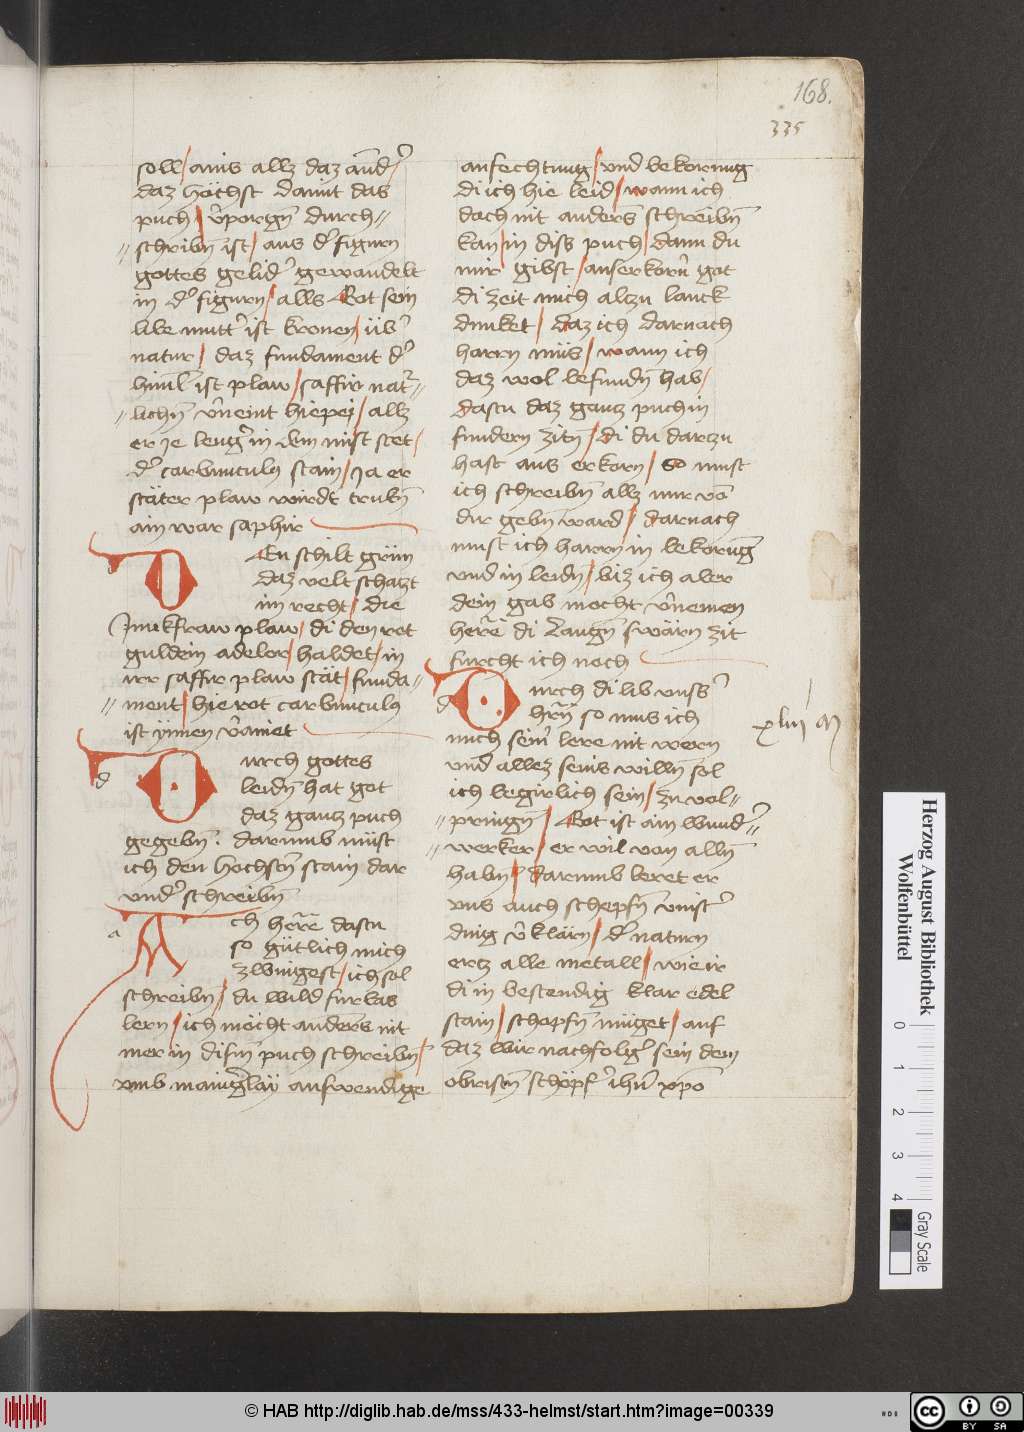 168.
335
soll / ains allz daz and̄
daz höchst damit das
puch / v̄porgn̄ durch //
// schribn̄ ist / aus d̓ figurn
gottes gelid̓ gewandelt
in d̓ figurn / alls Got sein
libe mutt̓ ist kronen / üb̓
natur / daz fundament d̓
himl̄ ist plaw / saffir nat̓ //
// lichn̄ v̄neint hiepei / allz
er ie leng̓ in mist stet /
d̓ carbunculus stain / ja er
stäter plaw wirdt trubn̄
ain war saphir
En schilt grün
daz velt schatzt
im recht / die
Junckfraw plaw / di den rot
guldein adeler / haldet / in
irr saffir plaw stät / funda //
// ment / hie rot carbunculus
ist ynnen v̄ainet
d Durch gottes
leidn̄ hat got
daz gantz puch
gegebn̄ . darumb müst
ich den höchstn̄ stain dar
vnd̓ schreibn̄
a Ach herre dastu
so gütlich mich
zwingest / ich sol
schreibn̄ / du wild furbas
lern / ich möcht anders nit
mer in dism̄ puch schreibn̄ /
vmb manig̓laÿ anfwendige
anfechtung / vnd bekorung
di ich hie leid / wann ich
doch nit anders schreibn̄
kan / in diss puch / dann du
mir gibst / auserkorn̄ got
di zeit mich altzu lanck
dunket / daz ich darnach
harrn müs / wann ich
daz wol befundn̄ hab /
dastu daz gantz puch in
sundern zitn̄ / di du dartzu
hast aus erkorn / so must
ich schreibn̄ allz mir vō
dir gebn̄ ward / darnach
must ich harrn in bekorūg
vnd in leidn̄ / biz ich aber
dein gab mocht v̄nemen
herre di langn̄ swärn zit
furcht ich noch
d Durch di lib vnss̓
hrn̄ so mus ich
mich sein̓ lere nit wern
vnd allez seins willn̄ sol
ich begirlich sein / zu vol //
// pringn̄ / Got ist ain wund̓ //
// werker / er wil von alln̄
habn̄ / darumb leret er
vns auch schepfn̄ vinst̓
ding v̄klärn / d̓ naturn
ertz alle metall / wie ir
di in bestendig klar edel
stain / schopfn̄ müget / auf
daz wir nachfolg̓ sein dem
obristn̄ schöpf̓ ihū xp̄o
Herzog August Bibliothek
Wolfenbüttel
0 1 2 3 4
Gray Scale
© HAB http://diglib.hab.de/mss/433-helmst/start.htm?image=00339
HAB
cc BY SA